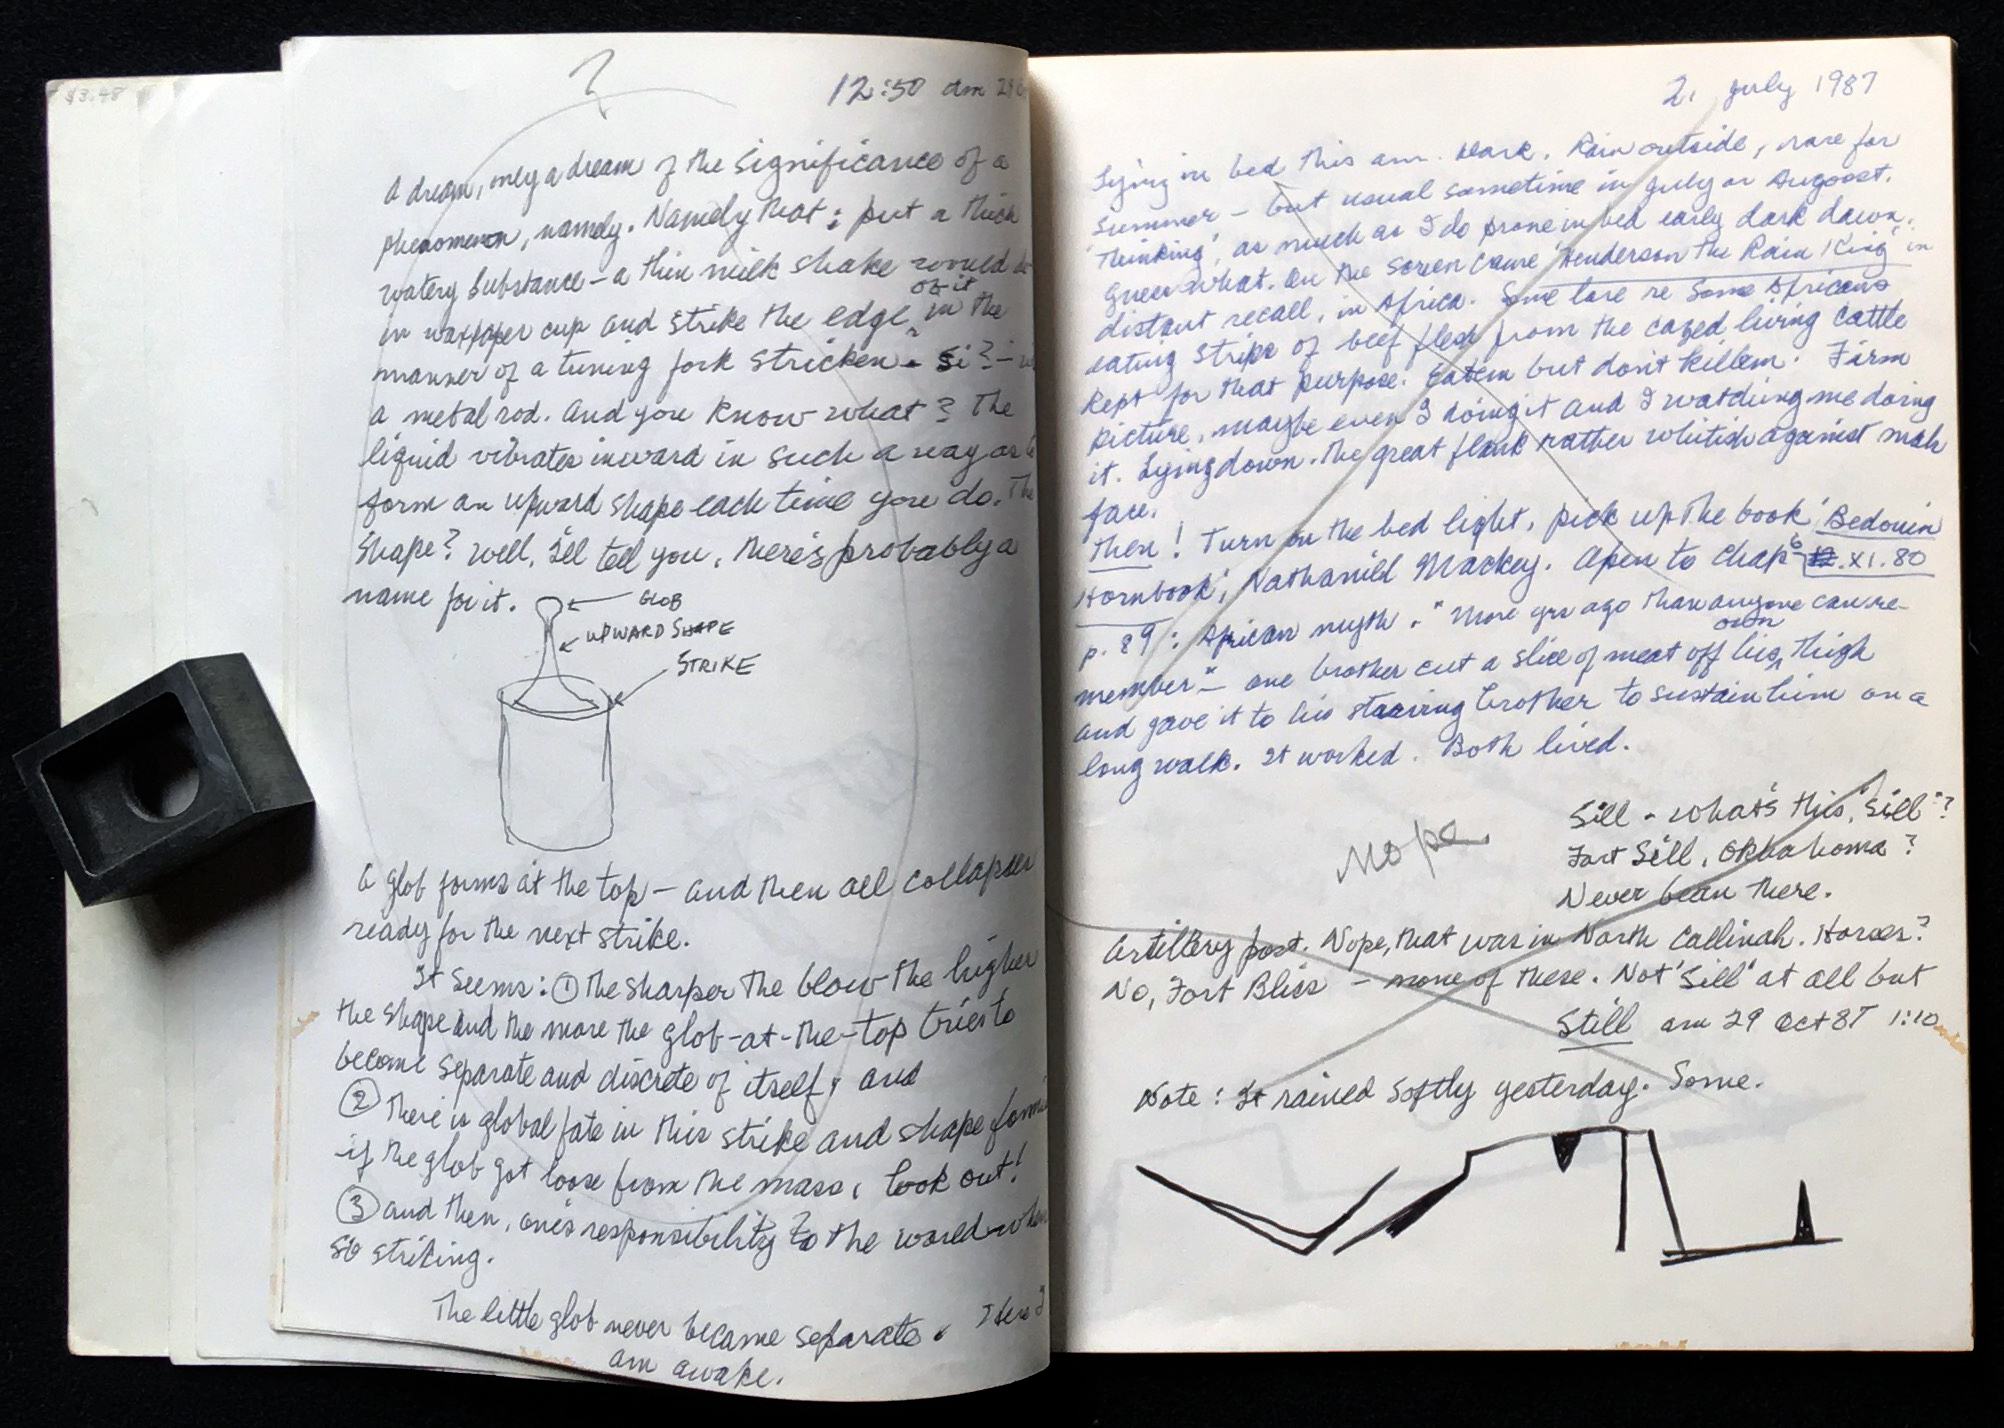 $3.48
?
12:50 am 29
A dream, only a dream of the significance of a
phenomenon, namely. Namely that: put a thick
watery substance – a thin milk shake would do
in wax paper cup and strike the edge of it in the
manner of a tuning fork stricken – Si? –
a metal rod. And you know what? The
liquid vibrates inward in such a way as to
form an upward shape each time you do. The
shape? Well, I'll tell you, there's probably a
name for it.
GLOB
UPWARD SHAPE
STRIKE
A glob forms at the top – and then all collapses
ready for the next strike.
It seems: ① The sharper the blow the higher
the shape and the more the glob-at-the-top tries to
become separate and discrete of itself, and
② There is global fate in this strike and shape
if the glob got loose from the mass, look out!
③ And then, one's responsibility to the world – when
so striking.
The little glob never became separate. Here I
am awake.
2, July 1987
Lying in bed this am. Dark. Rain outside, rare for
summer – but usual sometime in July or Augoost.
'Thinking', as much as I do prone in bed early dark dawn.
On the screen came 'Henderson the Rain King' in
distant recall, in Africa. Some lore re some Africans
eating strips of beef flesh from the caged, living cattle
kept for that purpose. Eatem but don't killem. Firm
picture, maybe even I doing it and I watching me doing
it. Lying down. The great flank rather whitish against
face.
Then! Turn on the bed light, pick up the book 'Bedouin
Hornbook', Nathaniel Mackey. Open to Chap 6 .XI.80
p. 89: African myth. "More yrs ago than anyone can re-
member" – one brother cut a slice of meat off his own thigh
and gave it to his starving brother to sustain him on a
long walk. It worked. Both lived.
Nope
Sill – what's this, "Sill"?
Fort Sill, Oklahoma?
Never been there.
Artillery post. Nope, that was in North Callinah. Horses?
No, Fort Bliss – none of these. Not 'Sill' at all but
Still am 29 Oct 87 1:10
Note: It rained softly yesterday. Some.